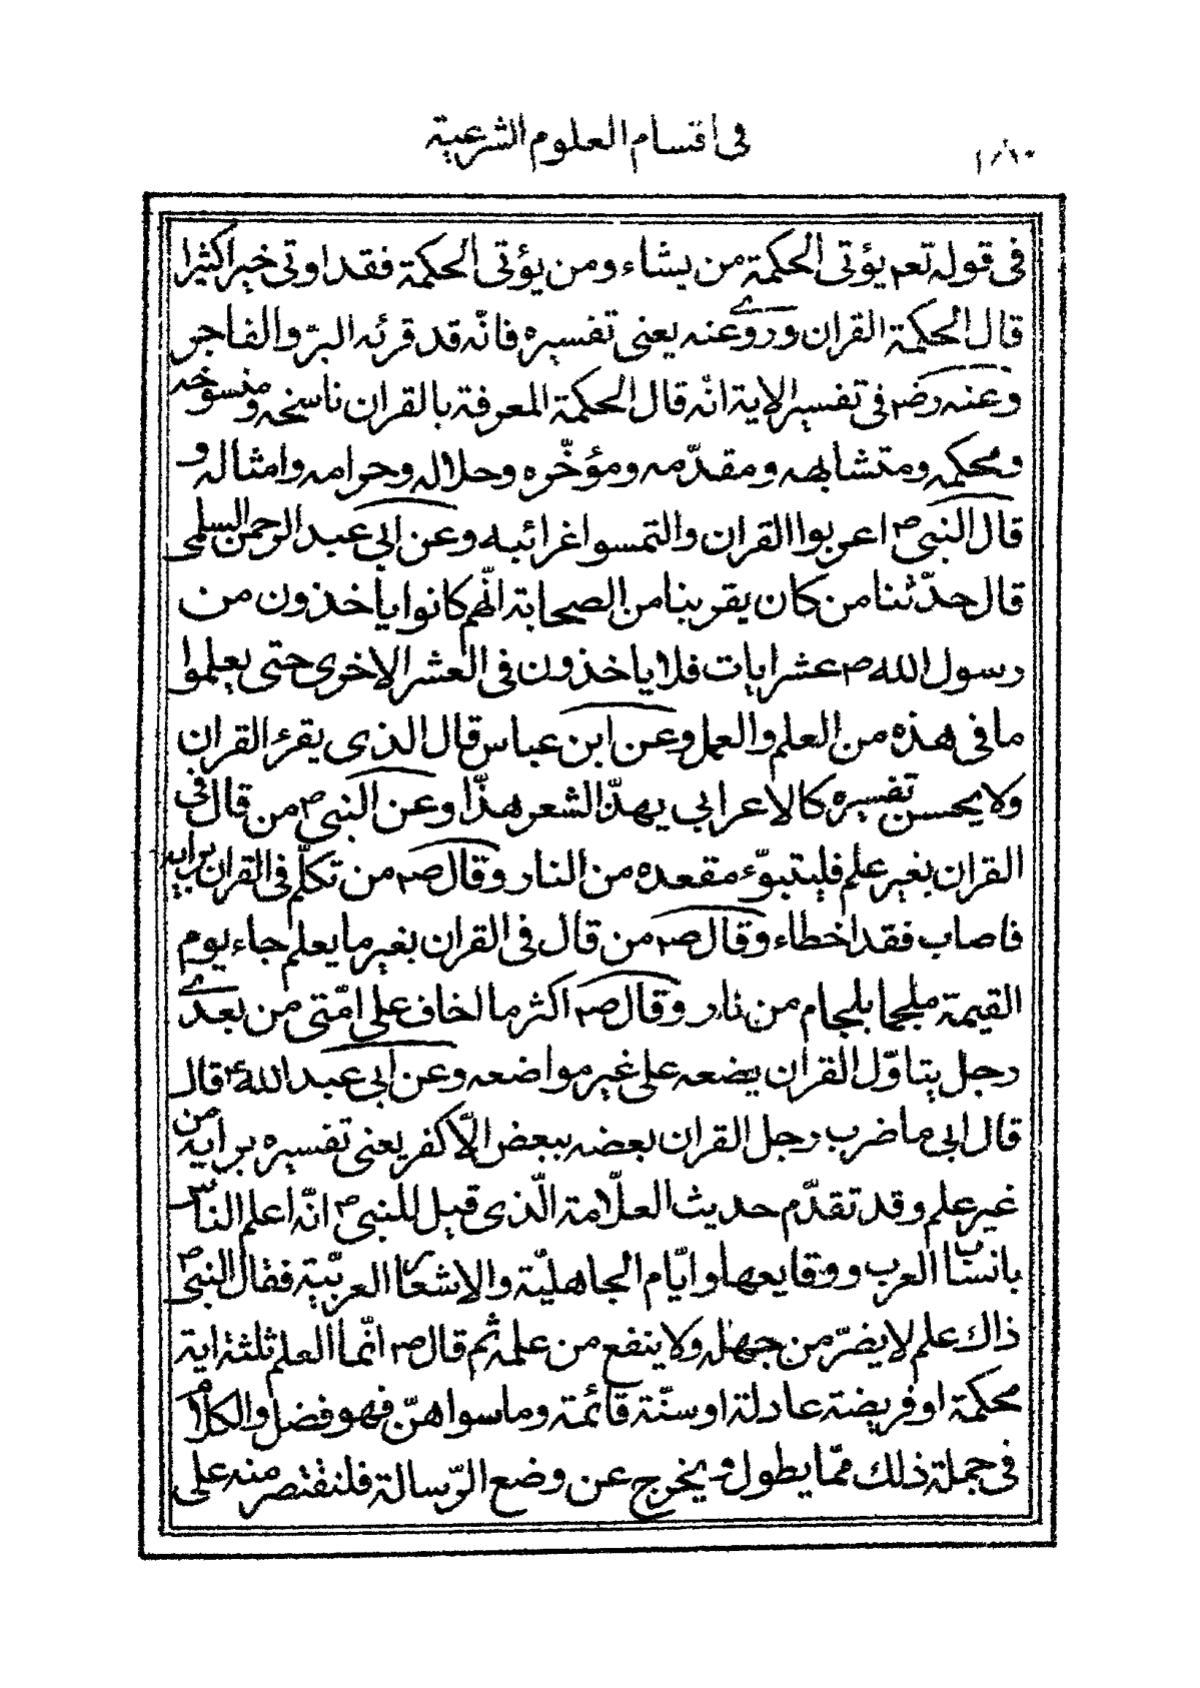 في اقسام العلوم الشرعية
في قوله تعم يؤتى الحكمة من يشاء ومن يؤتى الحكمة فقد اوتى خيرا كثيرا
قال الحكمة القران وروى عنه يعنى تفسيره فانّه قد قرئه البرّ والفاجر
وعنه رضم في تفسير الاية انّه قال الحكمة المعرفة بالقران ناسخه ومنسوخه
ومحكمه ومتشابهه ومقدّمه ومؤخّره وحلاله وحرامه وامثاله و
قال النبى ص اعربوا القران والتمسوا غرائبه وعن ابي عبد الرحمن السلمى
قال حدّثنا من كان يقربنا من الصحابة انّهم كانوا ياخذون من
رسول الله ص عشر ايات فلا ياخذون في العشر الاخرى حتى يعلموا
ما في هذه من العلم والعمل وعن ابن عباس قال الذى يقرء القران
ولا يحسن تفسيره كالاعرابي يهذّ الشعر هذّا وعن النبى ص من قال في
القران بغير علم فليتبوّء مقعده من النار وقال صم من تكلّم في القران برايه
فاصاب فقد اخطاء وقال صم من قال في القران بغير ما يعلم جاء يوم
القيمة ملجما بلجام من نار وقال صم اكثر ما اخاف على امّتى من بعدى
رجل يتاوّل القران يضعه على غير مواضعه وعن ابي عبد الله ع قال
قال ابي ما ضرب رجل القران بعضه ببعض الّا كفر يعنى تفسيره برايه من
غير علم وقد تقدّم حديث العلّامة الّذى قيل للنبى ص انّه اعلم النّاس
بانساب العرب ووقايعها وايّام الجاهليّة والاشعار العربيّة فقال النبى ص
ذاك علم لا يضرّ من جهله ولا ينفع من علمه ثم قال صم انّما العلم ثلثة اية
محكمة او فريضة عادلة او سنّة قائمة وما سواهنّ فهو فضل والكلام
في جملة ذلك ممّا يطول ويخرج عن وضع الرّسالة فلنقتصر منه على